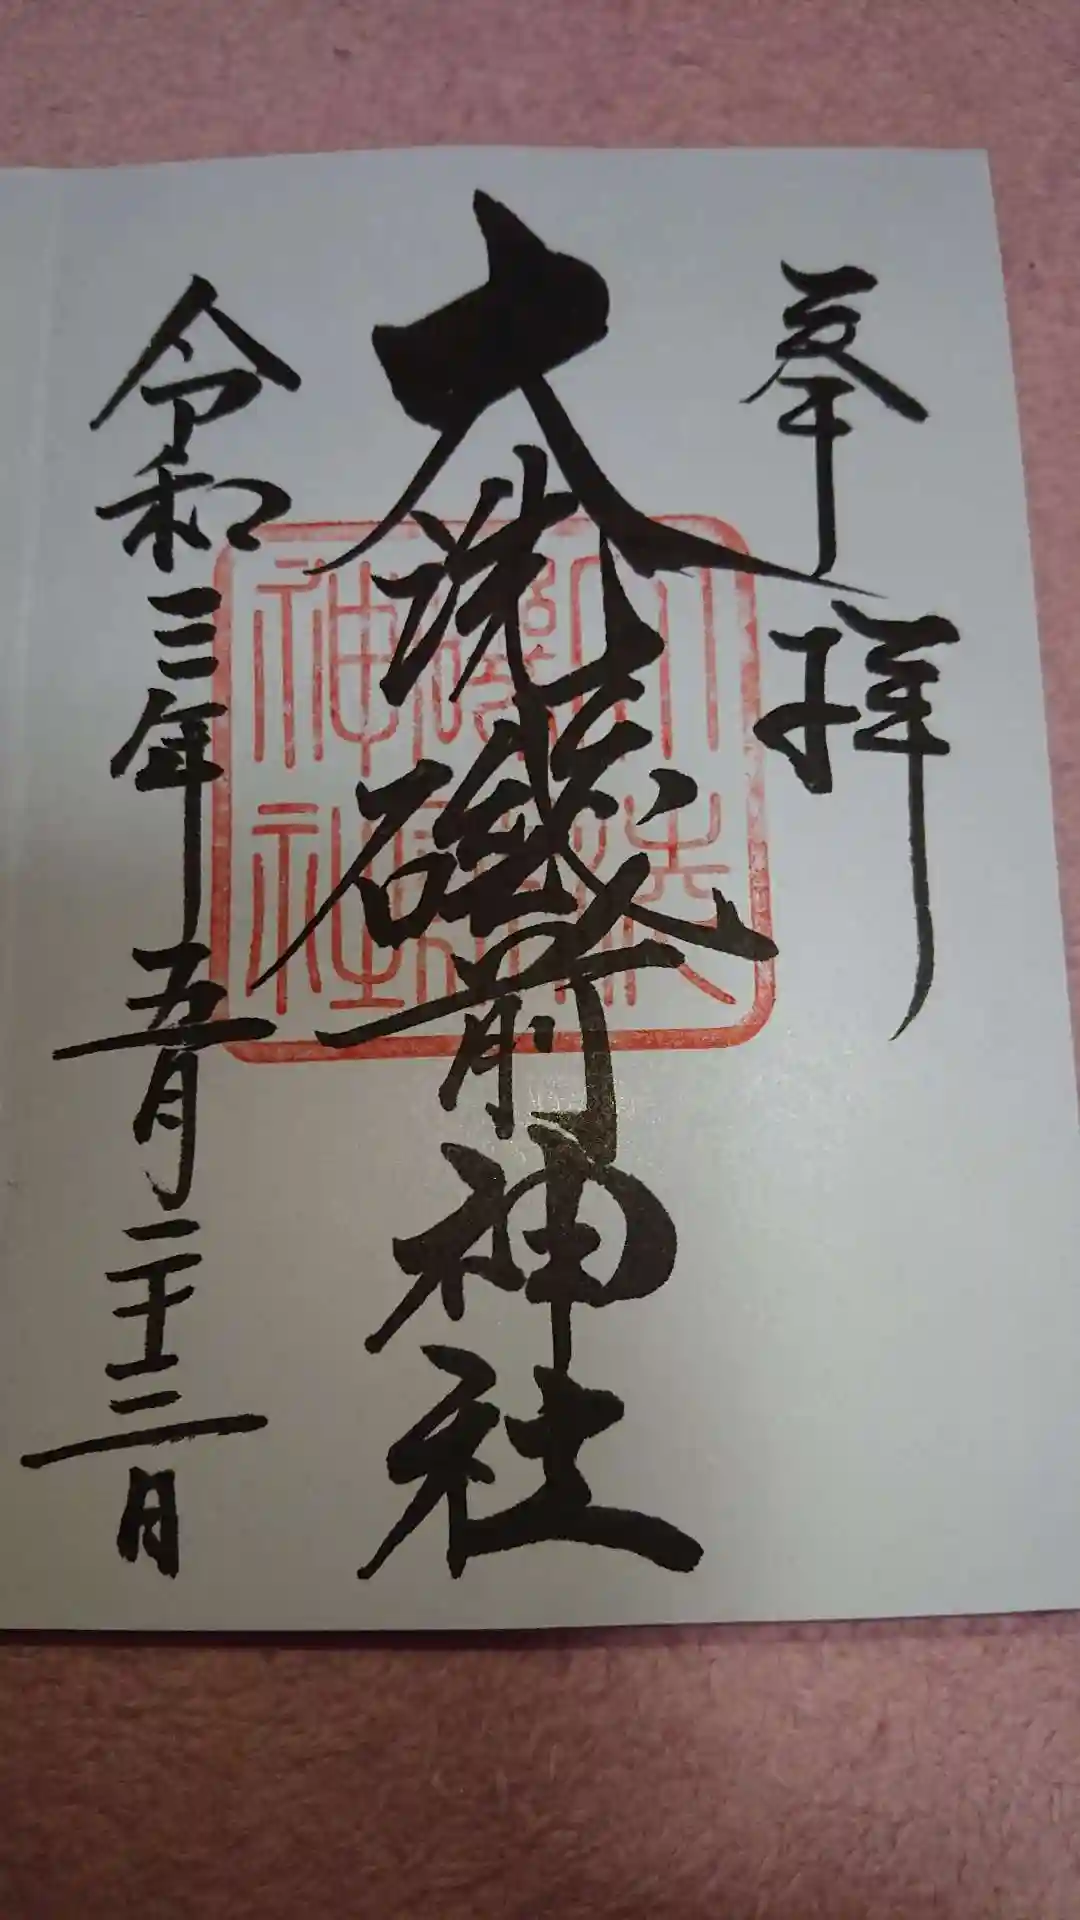 奉拝
大洗磯前神社
令和三年五月二十三日
大洗
磯前
神社